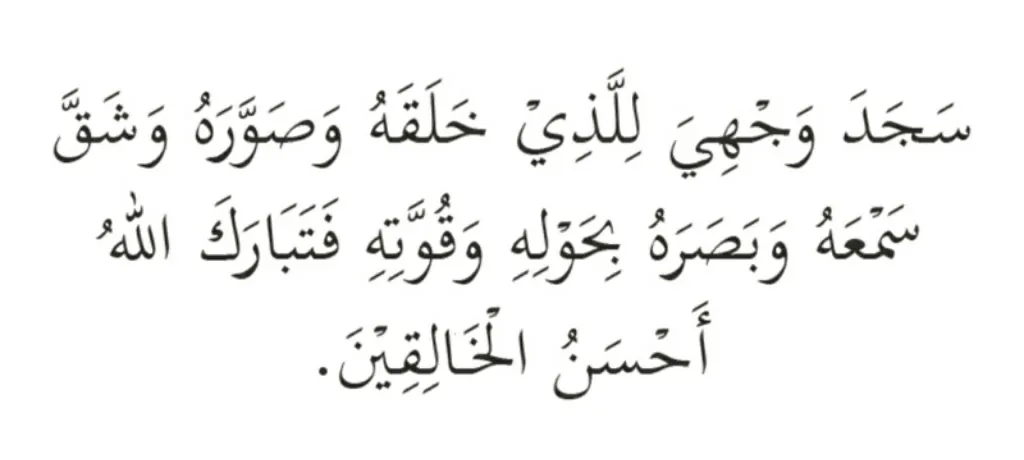 سَجَدَ وَجْهِيَ لِلَّذِيْ خَلَقَهُ وَصَوَّرَهُ وَشَقَّ
سَمْعَهُ وَبَصَرَهُ بِحَوْلِهِ وَقُوَّتِهِ فَتَبَارَكَ اللهُ
أَحْسَنُ الْخَالِقِيْنَ.